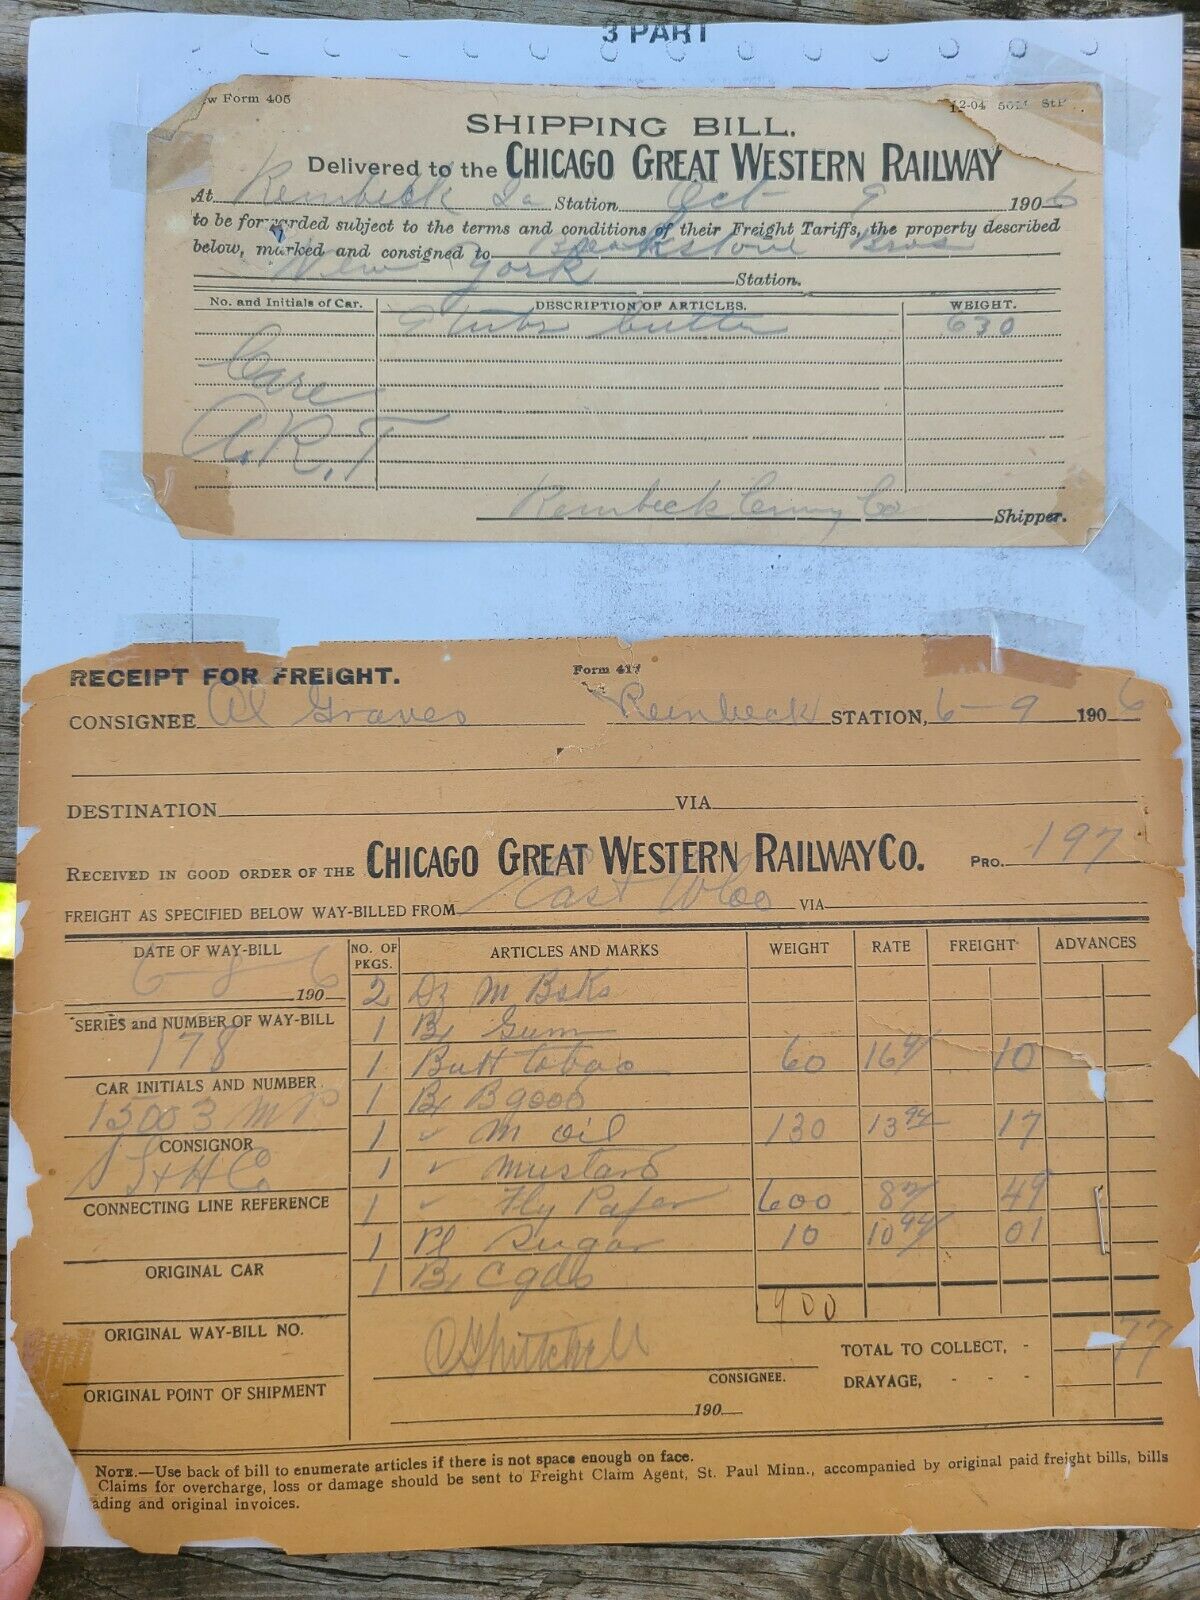 3 PART
w Form 405
12-04 50M StP
SHIPPING BILL.
Delivered to the CHICAGO GREAT WESTERN RAILWAY
At Reinbeck Ia Station Oct 9 1906
to be forwarded subject to the terms and conditions of their Freight Tariffs, the property described
below, marked and consigned to Breakstone Bros
New York Station.
No. and Initials of Car. DESCRIPTION OF ARTICLES. WEIGHT.
9 tubs butter 630
Care
A.R.T
Reinbeck Cmy Co Shipper.
RECEIPT FOR FREIGHT. Form 417
CONSIGNEE Al Graves Reinbeck STATION, 6-9 1906
DESTINATION VIA
RECEIVED IN GOOD ORDER OF THE CHICAGO GREAT WESTERN RAILWAY CO. PRO. 197
FREIGHT AS SPECIFIED BELOW WAY-BILLED FROM East Wloo VIA
DATE OF WAY-BILL NO. OF PKGS. ARTICLES AND MARKS WEIGHT RATE FREIGHT ADVANCES
6-8 1906 2 Dz M Bsks
SERIES and NUMBER OF WAY-BILL 1 Bx Gum
178 1 Butt tobao 60 16 94 10
CAR INITIALS AND NUMBER 1 Bx B good
15003 MP 1 " M oil 130 13 94 17
CONSIGNOR 1 " Mustard
S H Co 1 " Fly Paper 600 8 49
CONNECTING LINE REFERENCE 1 Pl Sugar 10 10 94 01
1 Bx C gds
ORIGINAL CAR
900
ORIGINAL WAY-BILL NO.
TOTAL TO COLLECT, - 77
CONSIGNEE. DRAYAGE, - - -
ORIGINAL POINT OF SHIPMENT
190
NOTE.—Use back of bill to enumerate articles if there is not space enough on face.
Claims for overcharge, loss or damage should be sent to Freight Claim Agent, St. Paul Minn., accompanied by original paid freight bills, bills
ading and original invoices.